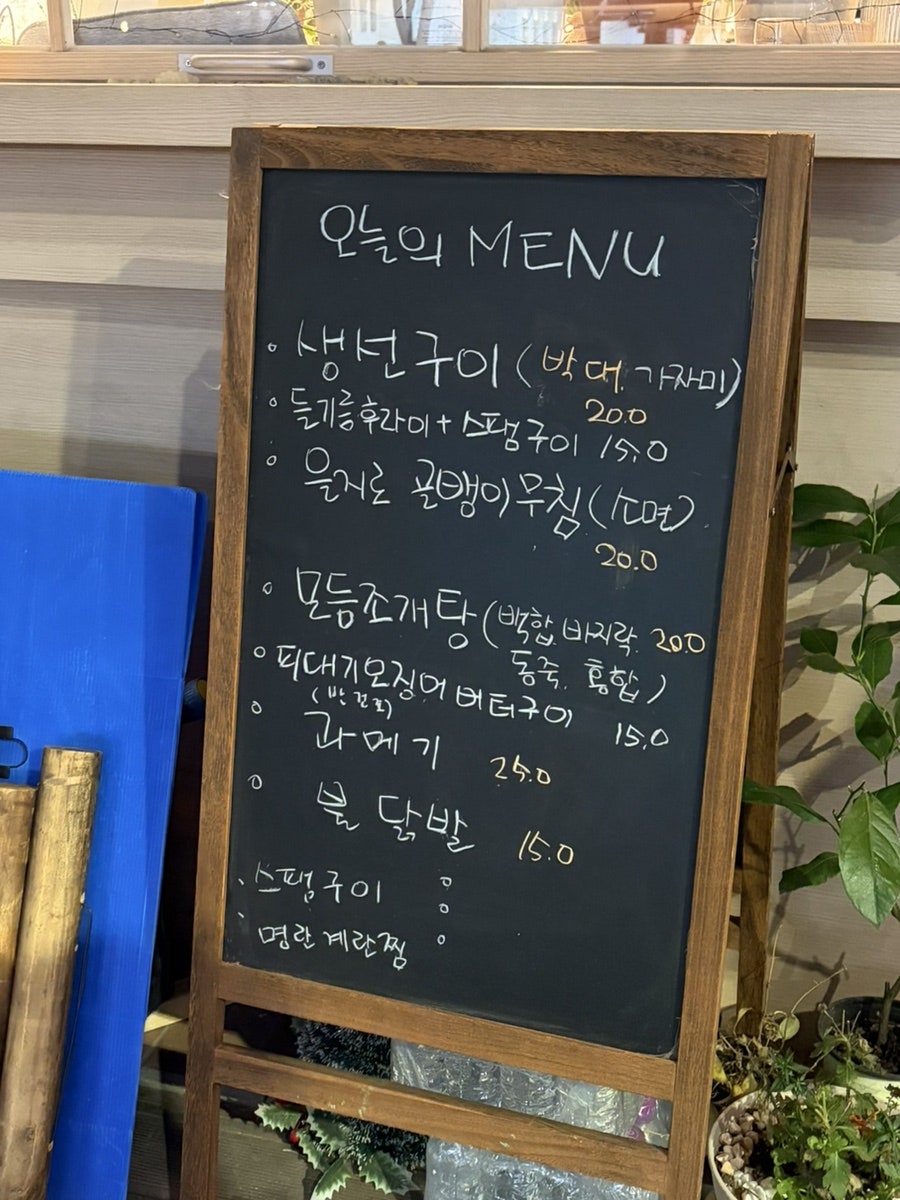 오늘의 MENU
• 생선구이 (박대. 가자미)
20.0
• 들기름후라이 + 스팸구이 15.0
• 을지로 골뱅이무침 (소면)
20.0
• 모듬조개탕 (백합. 바지락. 20.0
동죽. 홍합)
• 피대기오징어 버터구이 15.0
(반건조)
• 과메기 25.0
• 불닭발 15.0
• 스팸구이
• 명란계란찜